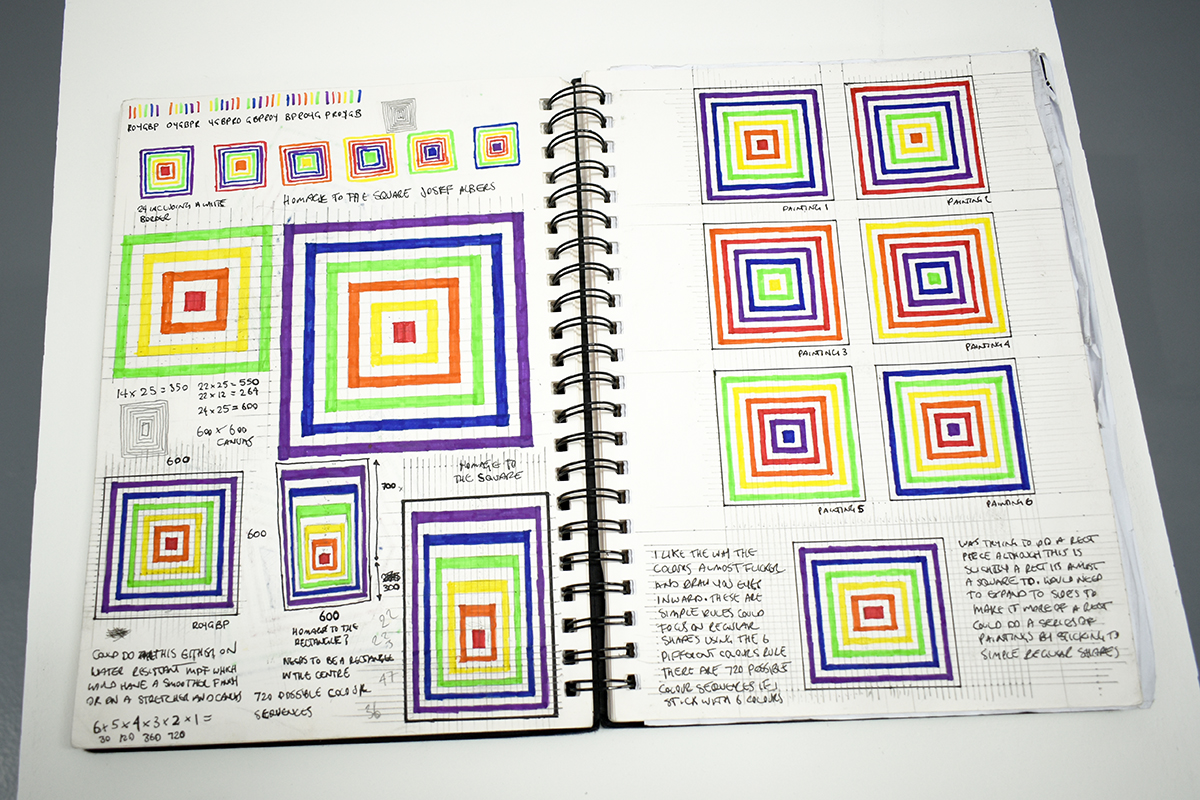 ROYGBP OYGBPR YGBPRO GBPROY BPROYG PROYGB
24 INCLUDING A WHITE
BORDER
HOMAGE TO THE SQUARE JOSEF ALBERS
14 x 25 = 350
22 x 25 = 550
22 x 12 = 264
24 x 25 = 600
600 x 600
CANVAS
600
600
ROYGBP
700
300
600
HOMAGE TO THE
RECTANGLE?
NEEDS TO BE A RECTANGLE
IN THE CENTRE
720 POSSIBLE COLOUR
SEQUENCES
HOMAGE TO
THE SQUARE
22
23
47
36
COULD DO THIS EITHER ON
WATER RESISTANT MDF WHICH
WOULD HAVE A SMOOTHER FINISH
OR ON A STRETCHER AND CANVAS
6 x 5 x 4 x 3 x 2 x 1 =
30 120 360 720
PAINTING 1
PAINTING 2
PAINTING 3
PAINTING 4
PAINTING 5
PAINTING 6
I LIKE THE WAY THE
COLOURS ALMOST FLICKER
AND DRAW YOU EYES
INWARD. THESE ARE
SIMPLE RULES COULD
FOCUS ON REGULAR
SHAPES USING THE 6
DIFFERENT COLOURS RULE
THERE ARE 720 POSSIBLE
COLOUR SEQUENCES IF I
STICK WITH 6 COLOURS
WAS TRYING TO DO A RECT
PIECE ALTHOUGH THIS IS
SLIGHTLY A RECT ITS ALMOST
A SQUARE TO. WOULD NEED
TO EXPAND TO SIDES TO
MAKE IT MORE OF A RECT
COULD DO A SERIES OF
PAINTINGS BY STICKING TO
SIMPLE REGULAR SHAPES